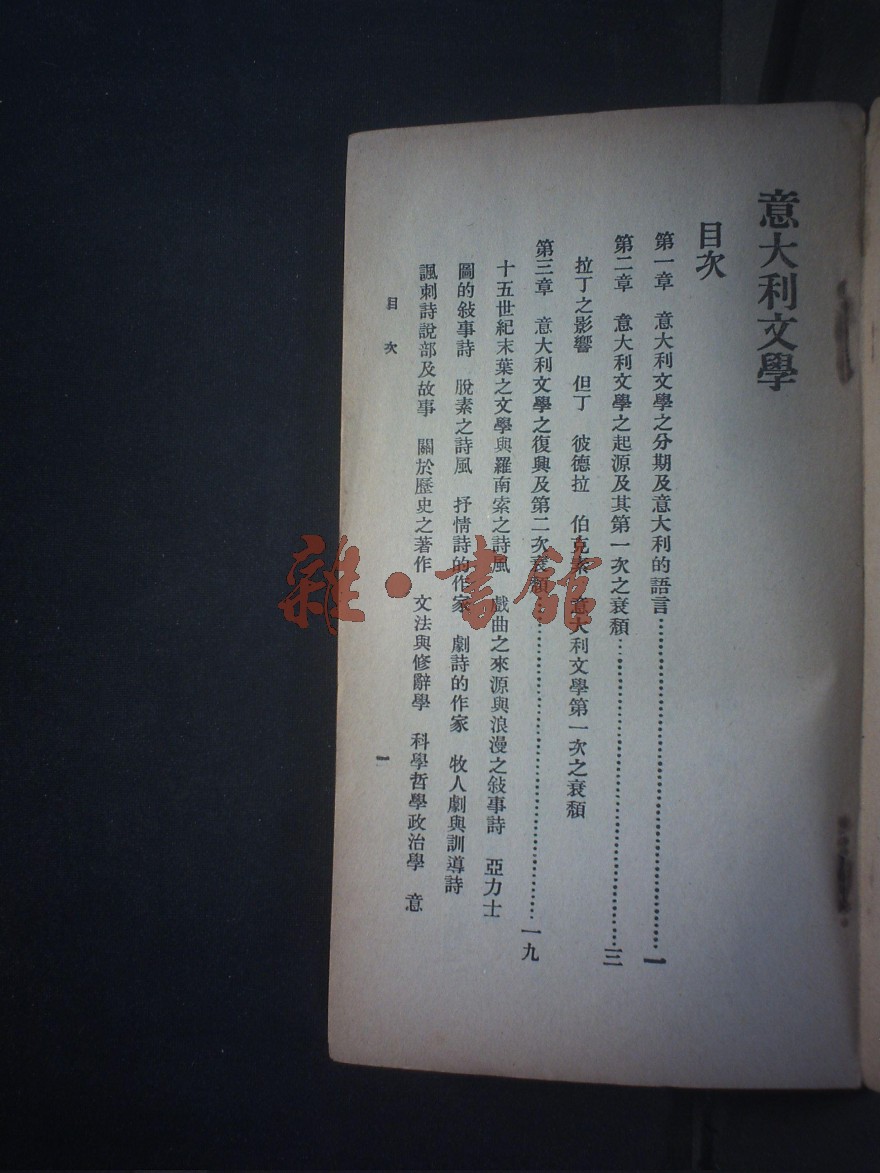 意大利文學
目次
第一章　意大利文學之分期及意大利的語言……………………………一
第二章　意大利文學之起源及其第一次之衰頹……………………………三
拉丁之影響　但丁　彼德拉　伯克索　意大利文學第一次之衰頹
第三章　意大利文學之復興及第二次衰頹……………………………一九
十五世紀末葉之文學與羅南索之詩風　戲曲之來源與浪漫之敍事詩　亞力士
圖的敍事詩　脫素之詩風　抒情詩的作家　劇詩的作家　牧人劇與訓導詩
諷刺詩說部及故事　關於歷史之著作　文法與修辭學　科學哲學政治學　意
目次
一
雜·書館